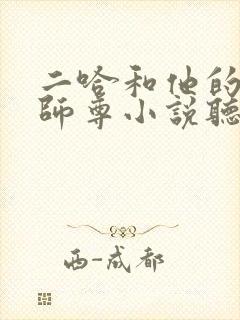 二哈和他的
師尊小說聽
西-成都